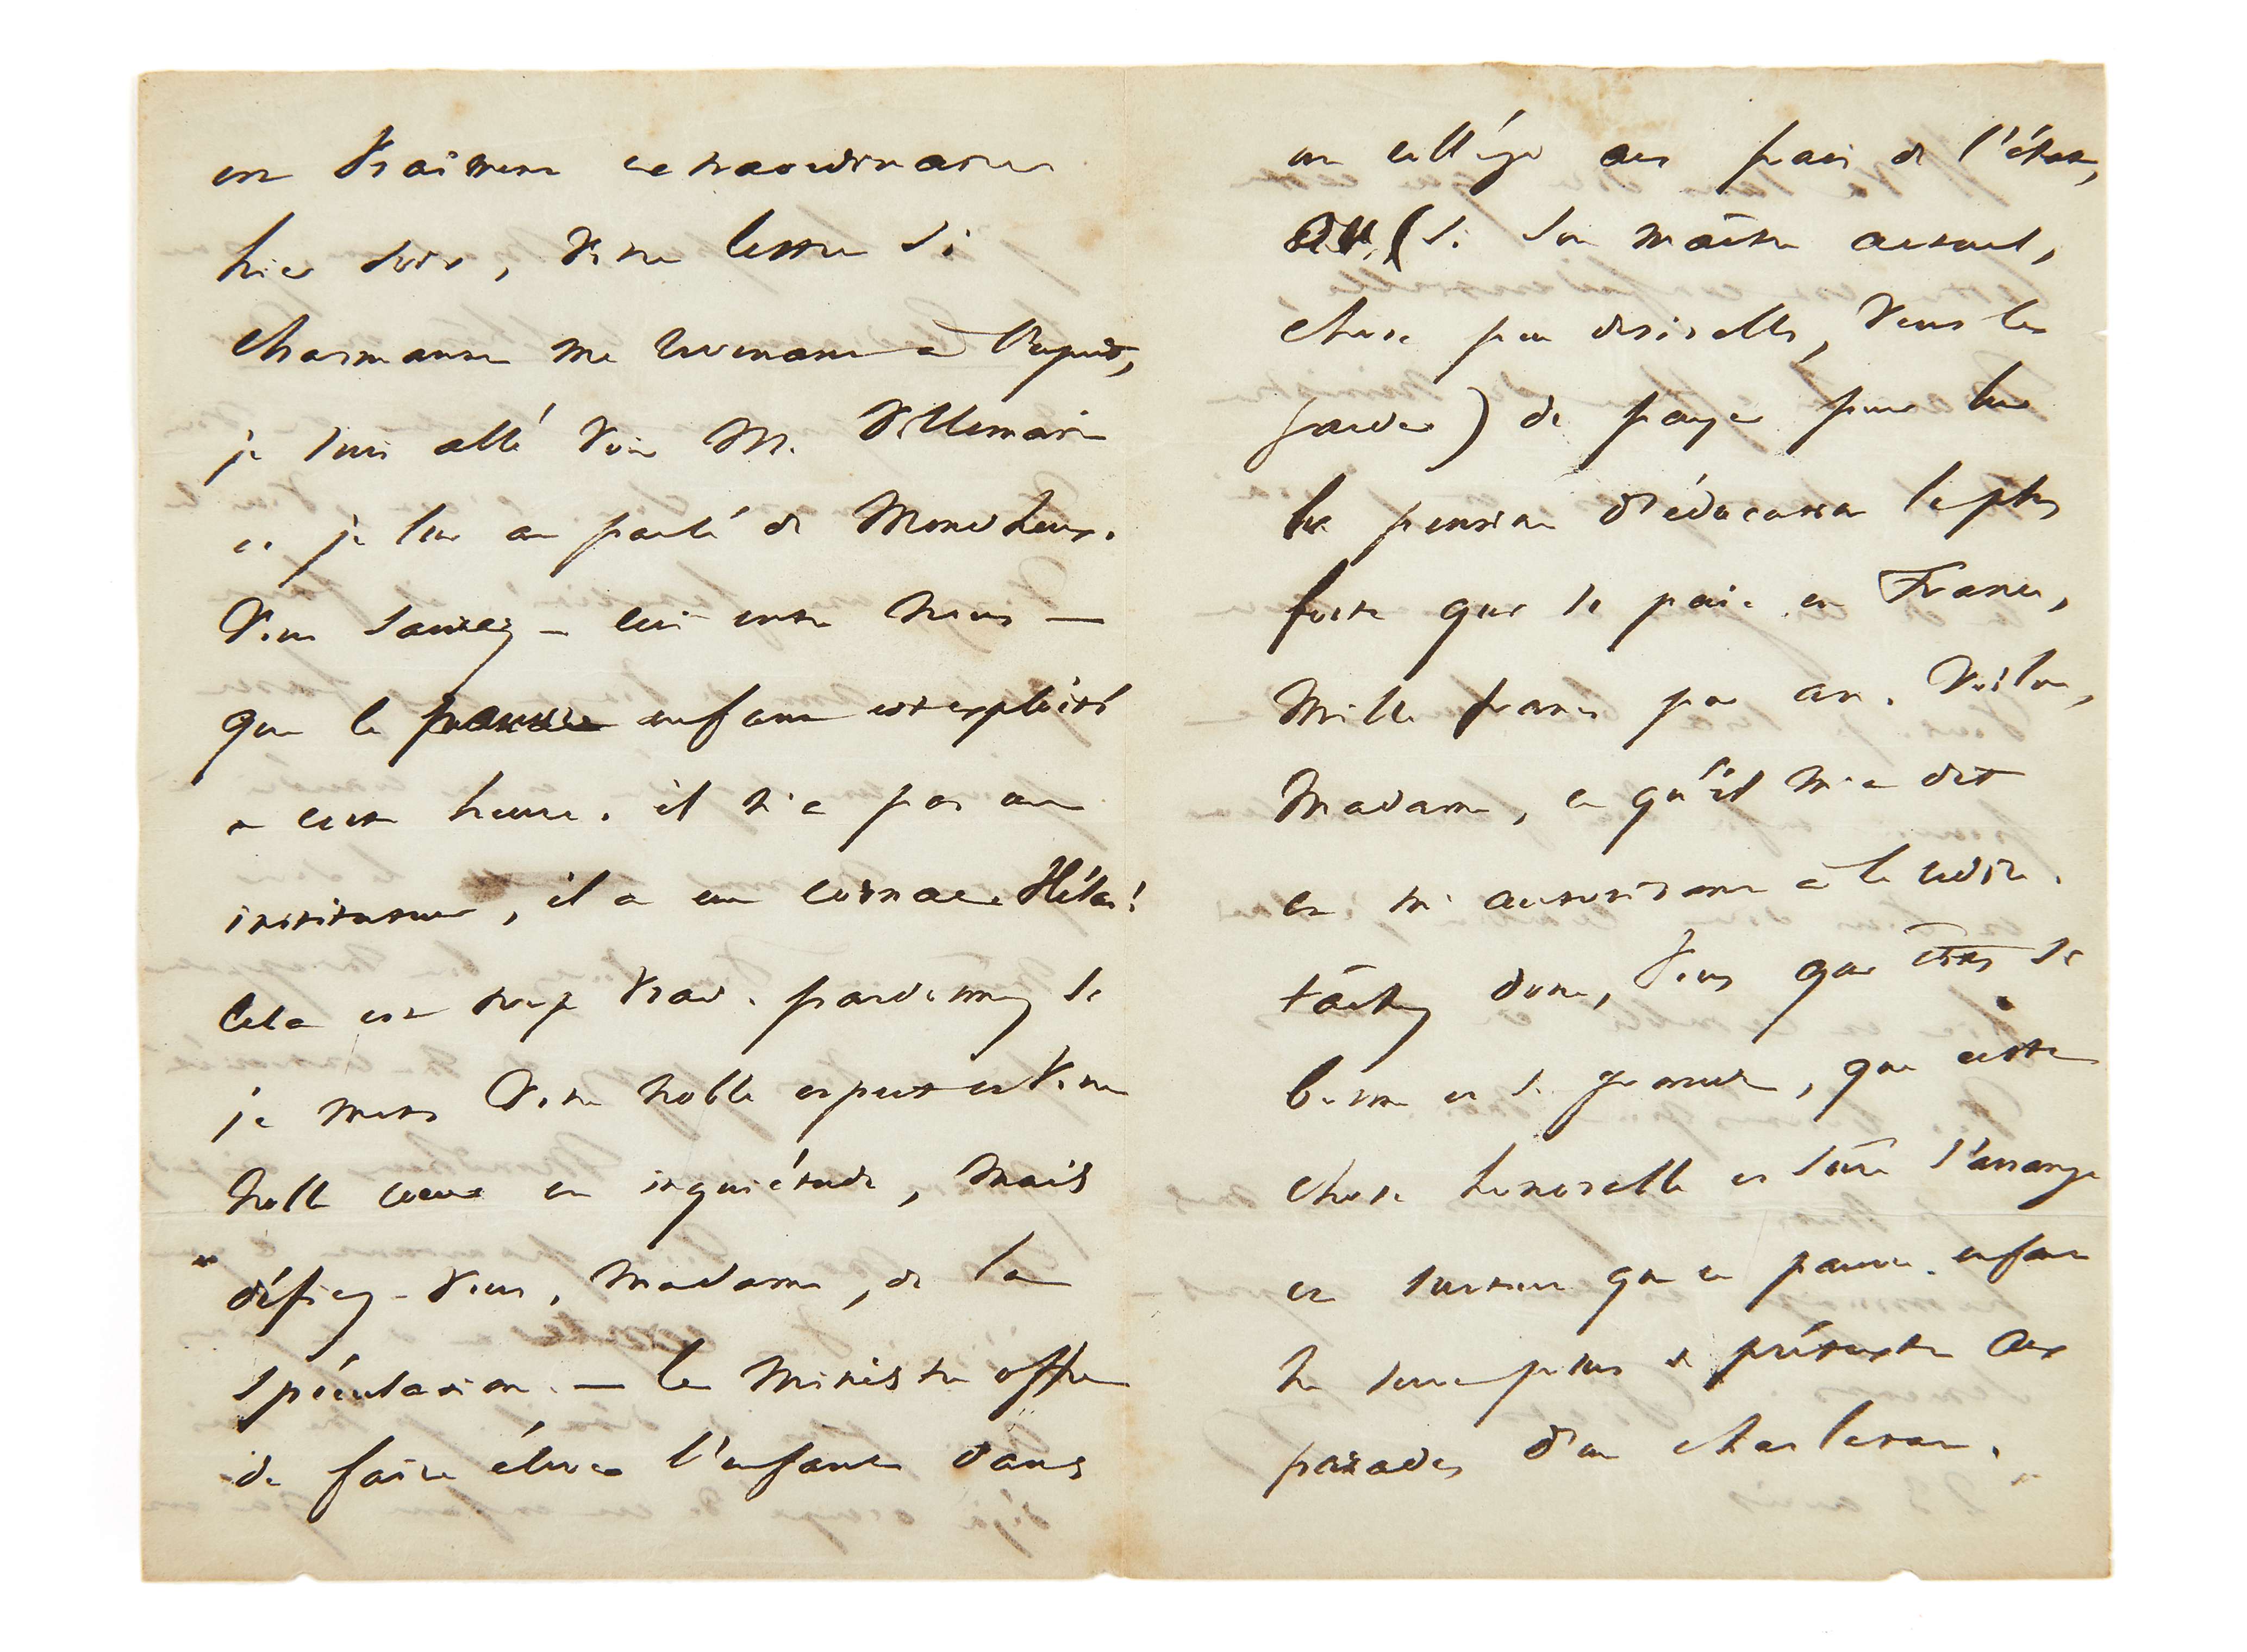 est vraiment extraordinaire
hier soir, votre lettre si
charmante me revenant à l'esprit,
je suis allé voir M. Villemain
et je lui ai parlé de Mondheux.
Vous savez – ceci entre nous –
que le pauvre enfant est exploité
à cette heure. il n'a pas un
instituteur, il a un cornac. Hélas!
cela est trop vrai. pardonnez si
je mets votre noble esprit et votre
noble cœur en inquiétude, mais
défiez-vous, Madame, de la
spéculation. — le ministre offre
de faire élever l'enfant dans
un collége aux frais de l'état,
ou (si son maître actuel,
chose peu désirable, veut le
garder) de payer pour lui
la pension d'éducation la plus
forte qui se paie en France,
mille francs par an. Voilà,
Madame, ce qu'il m'a dit
en m'autorisant à le redire.
tâchez donc, vous qui êtes si
bonne et si gracieuse, que cette
chose honorable et sûre s'arrange
et surtout que ce pauvre enfant
ne serve plus de prétexte aux
parades d'un charlatan.